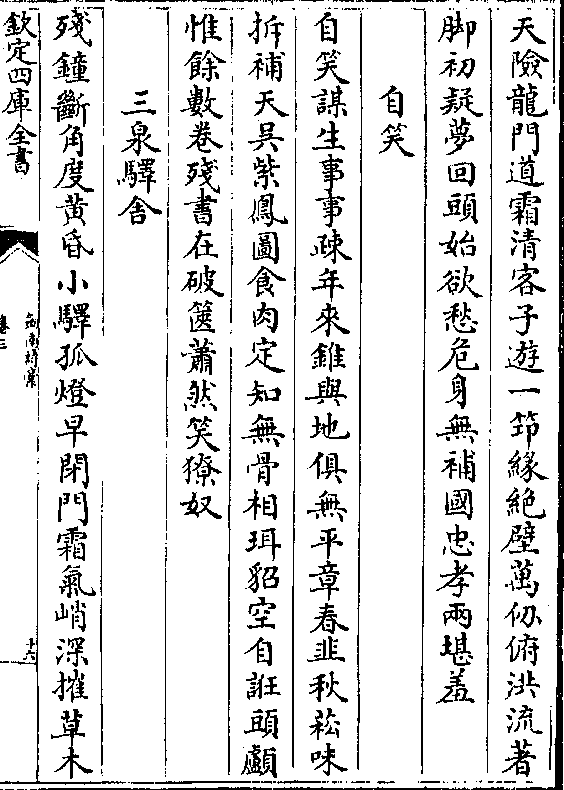 天險龍門道霜清客子遊一笻緣絶壁萬仭俯洪流著
脚初疑夢回頭始欲愁危身無補國忠孝兩堪羞
自笑
自笑謀生事事疎年來錐與地俱無平章春韭秋菘味
拆補天吳紫鳳圖食肉定知無骨相珥貂空自誑頭顱
惟餘數卷殘書在破篋蕭然笑獠奴
三泉驛舍
殘鐘斷角度黄昏小驛孤燈早閉門霜氣峭深摧草木
欽定四庫全書
劍南詩藁
卷三
十六